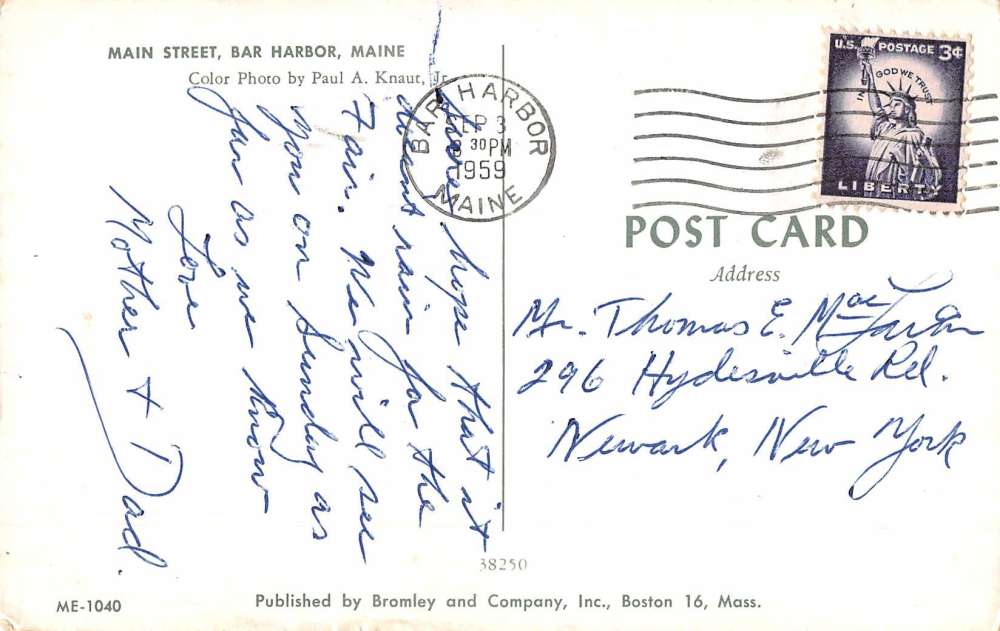 MAIN STREET, BAR HARBOR, MAINE
Color Photo by Paul A. Knaut, Jr.
hope that it
doesnt rain for the
Fair. We will see
you on Sunday as
far as we know
Love
Mother + Dad.
BAR HARBOR
SEP 3
30 PM
1959
MAINE
U.S. POSTAGE 3¢
IN GOD WE TRUST
LIBERTY
POST CARD
Address
Mr. Thomas E. MacLaren
296 Hydesville Rd.
Newark, New York
38250
ME-1040
Published by Bromley and Company, Inc., Boston 16, Mass.